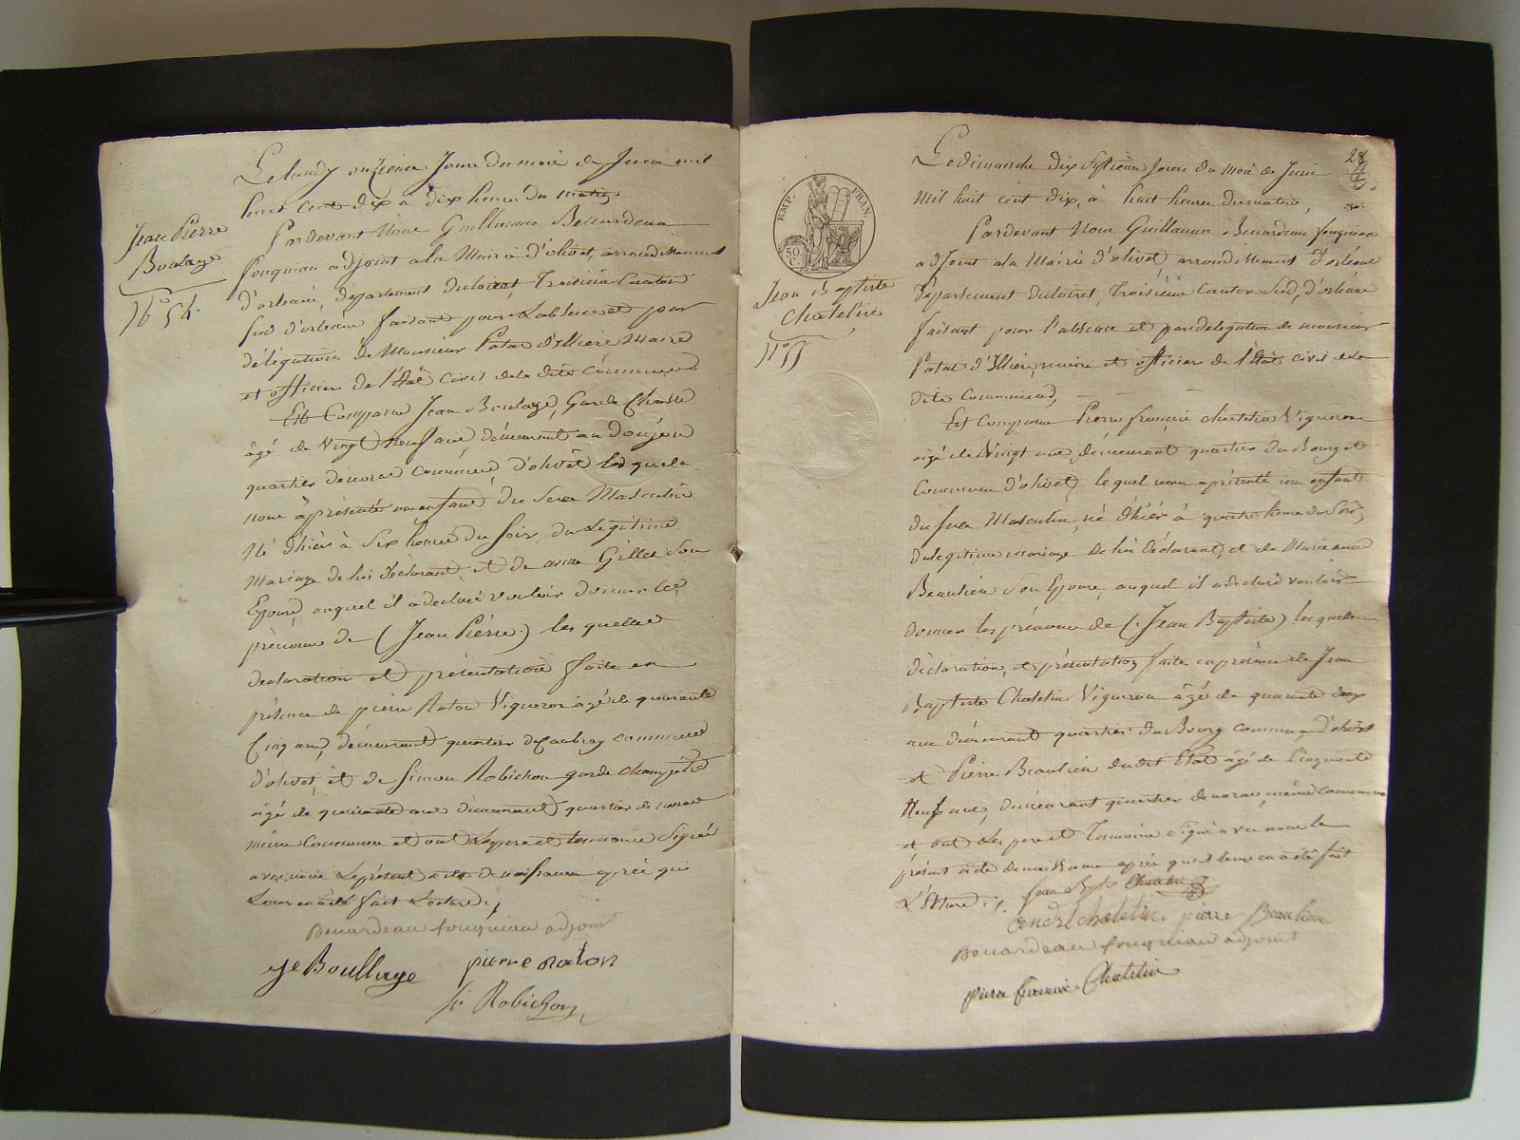 Le lundy onzieme Jour du mois de Juin mil
huit Cent dix à dix heures du matin
Jean Pierre
Boulage
N° 54.
Pardevant Nous Guillaume Benardeau
fouqueau adjoint a la Mairie d'olivet, arrondissement
d'orleans, departement du loiret, Troisieme Canton
Sud d'orleans faisant pour L'absence et par
délégation de Monsieur Patas d'Illiers Maire
et officier de l'état Civil de la dite Commune
Est Comparu Jean Boulage, Garde Chasse
âgé de Vingt neuf ans, demeurant au Donjon
quartier de commune d'olivet lequel
nous à présenté un enfant du Sexe Masculin
Né d'hier à Six heures du Soir, du Légitime
Mariage de lui déclarant, et de anne Gillet Son
Epouse, auquel il a declaré vouloir donner les
prénoms de (Jean Pierre) les quelles
declaration et présentation faite en
présence de pierre Raton Vigneron âgé de quarante
Cinq ans, demeurant quartier de commune
d'olivet, et de Simon Robichon garde champêtre
âgé de quarante ans demeurant quartier de
même Commune et ont Le pere et temoins Signé
avec nous Le présent acte de naissance après que
Leur en a été fait Lecture,
Benardeau fouqueau adjoint
Je Boullage pierre raton
Si Robichon
28
Le dimanche dix Septieme Jour du mois de Juin
Mil huit cent dix, à huit heures du matin,
EMP. FRAN.
50 C.
Jean Baptiste
Chatelin
N° 55
Pardevant Nous Guillaume Benardeau fouqueau
adjoint a la Mairie d'olivet arrondissement d'orleans
département du loiret, Troisième Canton Sud, d'orleans
faisant pour l'absence et par délégation de monsieur
Patas d'Illiers, maire et officier de l'Etat civil de la
dite Commune,
Est Comparu Pierre francois chatelin Vigneron
âgé de Vingt ans, demeurant quartier du Bourg et
Commune d'olivet, lequel nous a présenté un enfant
du Sexe Masculin, né d'hier à quatre heures du Soir,
du legitime mariage de lui déclarant, et de Marie anne
Beaulieu Son Epouse, auquel il a declaré vouloir
donner les prénoms de (Jean Baptiste) les quelles
déclaration, et présentation faite en présence de Jean
Baptiste Chatelin Vigneron âgé de quarante deux
ans demeurant quartier du Bourg commune d'olivet
et Pierre Beaulieu du dit Etat âgé de Cinquante
Neuf ans, demeurant quartier de même commune
et ont Les pere et Temoins signé avec nous le
présent acte de naissance après que Lecture en a été fait
Jean Bpte Chatelin
chatelin. pierre Beaulieu
Benardeau fouqueau adjoint
pierre francois Chatelin